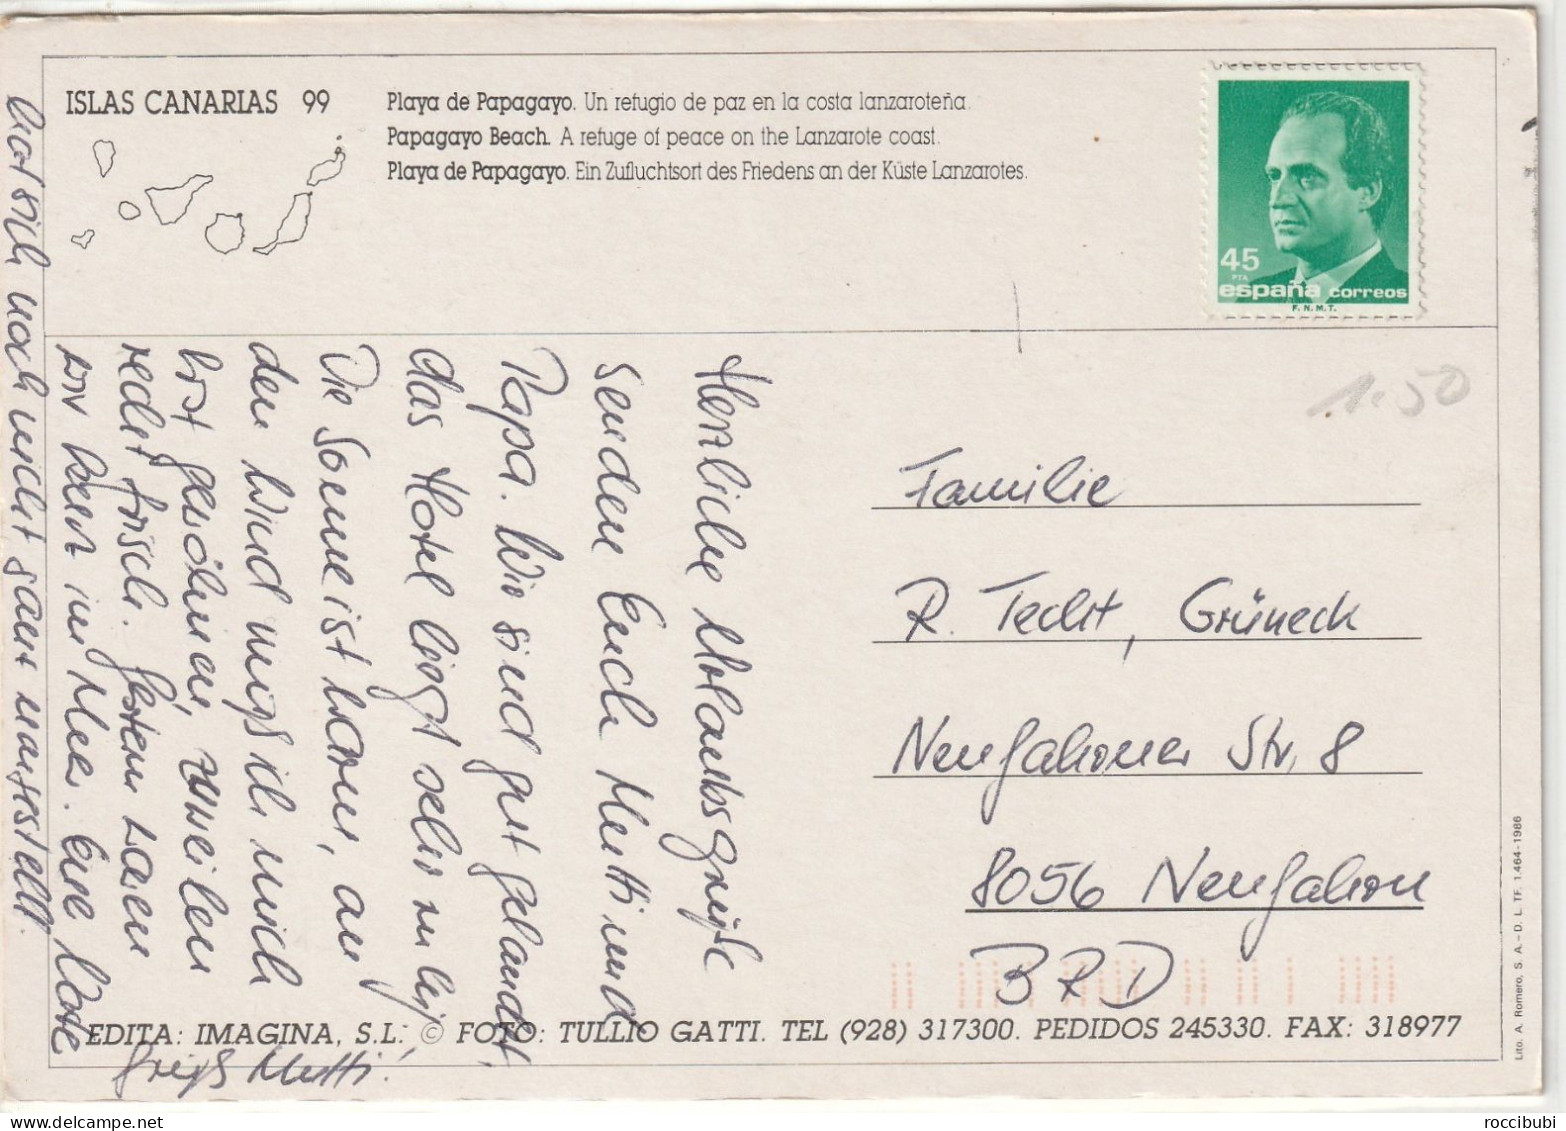 ISLAS CANARIAS 99
Playa de Papagayo. Un refugio de paz en la costa lanzaroteña.
Papagayo Beach. A refuge of peace on the Lanzarote coast.
Playa de Papagayo. Ein Zufluchtsort des Friedens an der Küste Lanzarotes.
45
PTA
españa correos
F.N.M.T.
1.50
Herzliche Urlaubsgrüße
senden Euch Mutti und
Papa. Wir sind gut gelandet,
das Hotel liegt sehr ruhig.
Die Sonne ist warm, an
den Wind muß ich mich
erst gewöhnen, zuweilen
recht frisch. Gestern waren
wir kurz im Meer.
hat sich noch nicht
grüßt Mutti!
Familie
R. Techt, Grüneck
Neufahrner Str. 8
8056 Neufahrn
BRD
EDITA: IMAGINA, S.L. © FOTO: TULLIO GATTI. TEL (928) 317300. PEDIDOS 245330. FAX: 318977
Lito. A. Romero, S. A. - D. L. TF. 1.464-1986
roccibubi